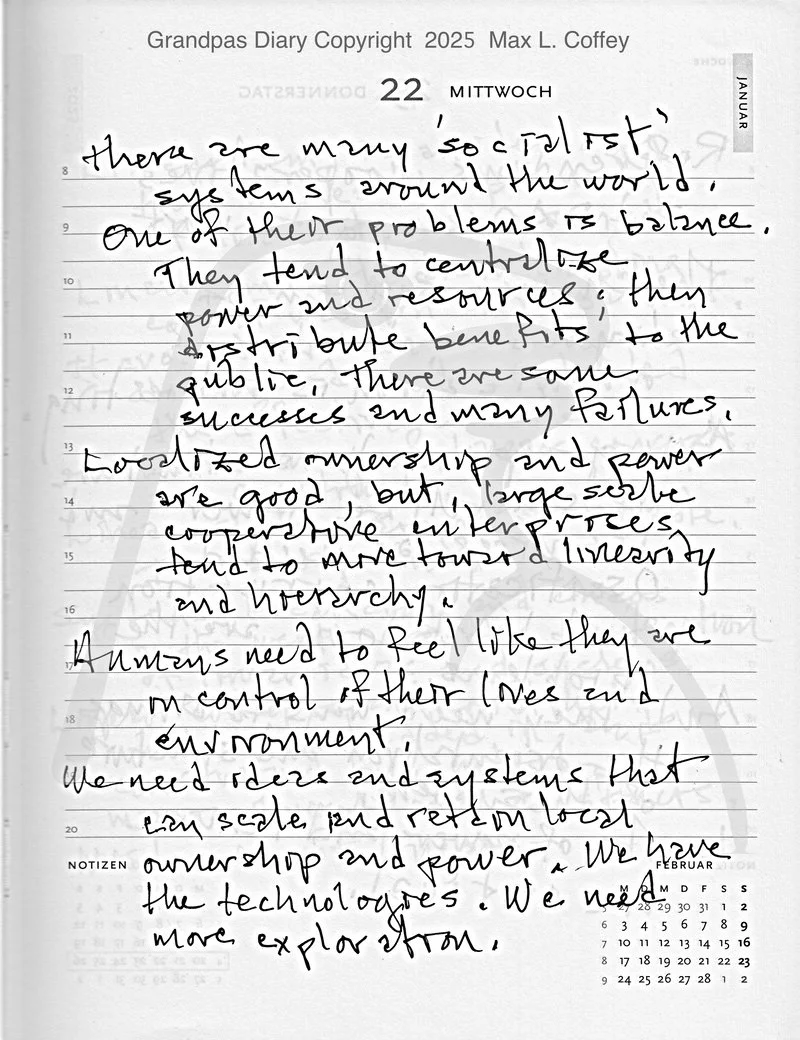 Grandpas Diary Copyright 2025 Max L. Coffey
22 MITTWOCH
JANUAR
there are many 'socialist'
8
systems around the world.
9
One of their problems is balance.
They tend to centralize
10
power and resources; then
11
distribute 'benefits' to the
public. There are some
12
successes and many failures.
13
Localized ownership and power
14
are good, but, large scale
cooperative enterprises
15
tend to move toward linearity
and hierarchy.
16
Humans need to feel like they are
17
in control of their lives and
18
environment.
We need ideas and systems that
can scale and retain local
20
NOTIZEN ownership and power. We have
FEBRUAR
the technologies. We need
more exploration.
M D M D F S S
5 27 28 29 30 31 1 2
6 3 4 5 6 7 8 9
7 10 11 12 13 14 15 16
8 17 18 19 20 21 22 23
9 24 25 26 27 28 1 2